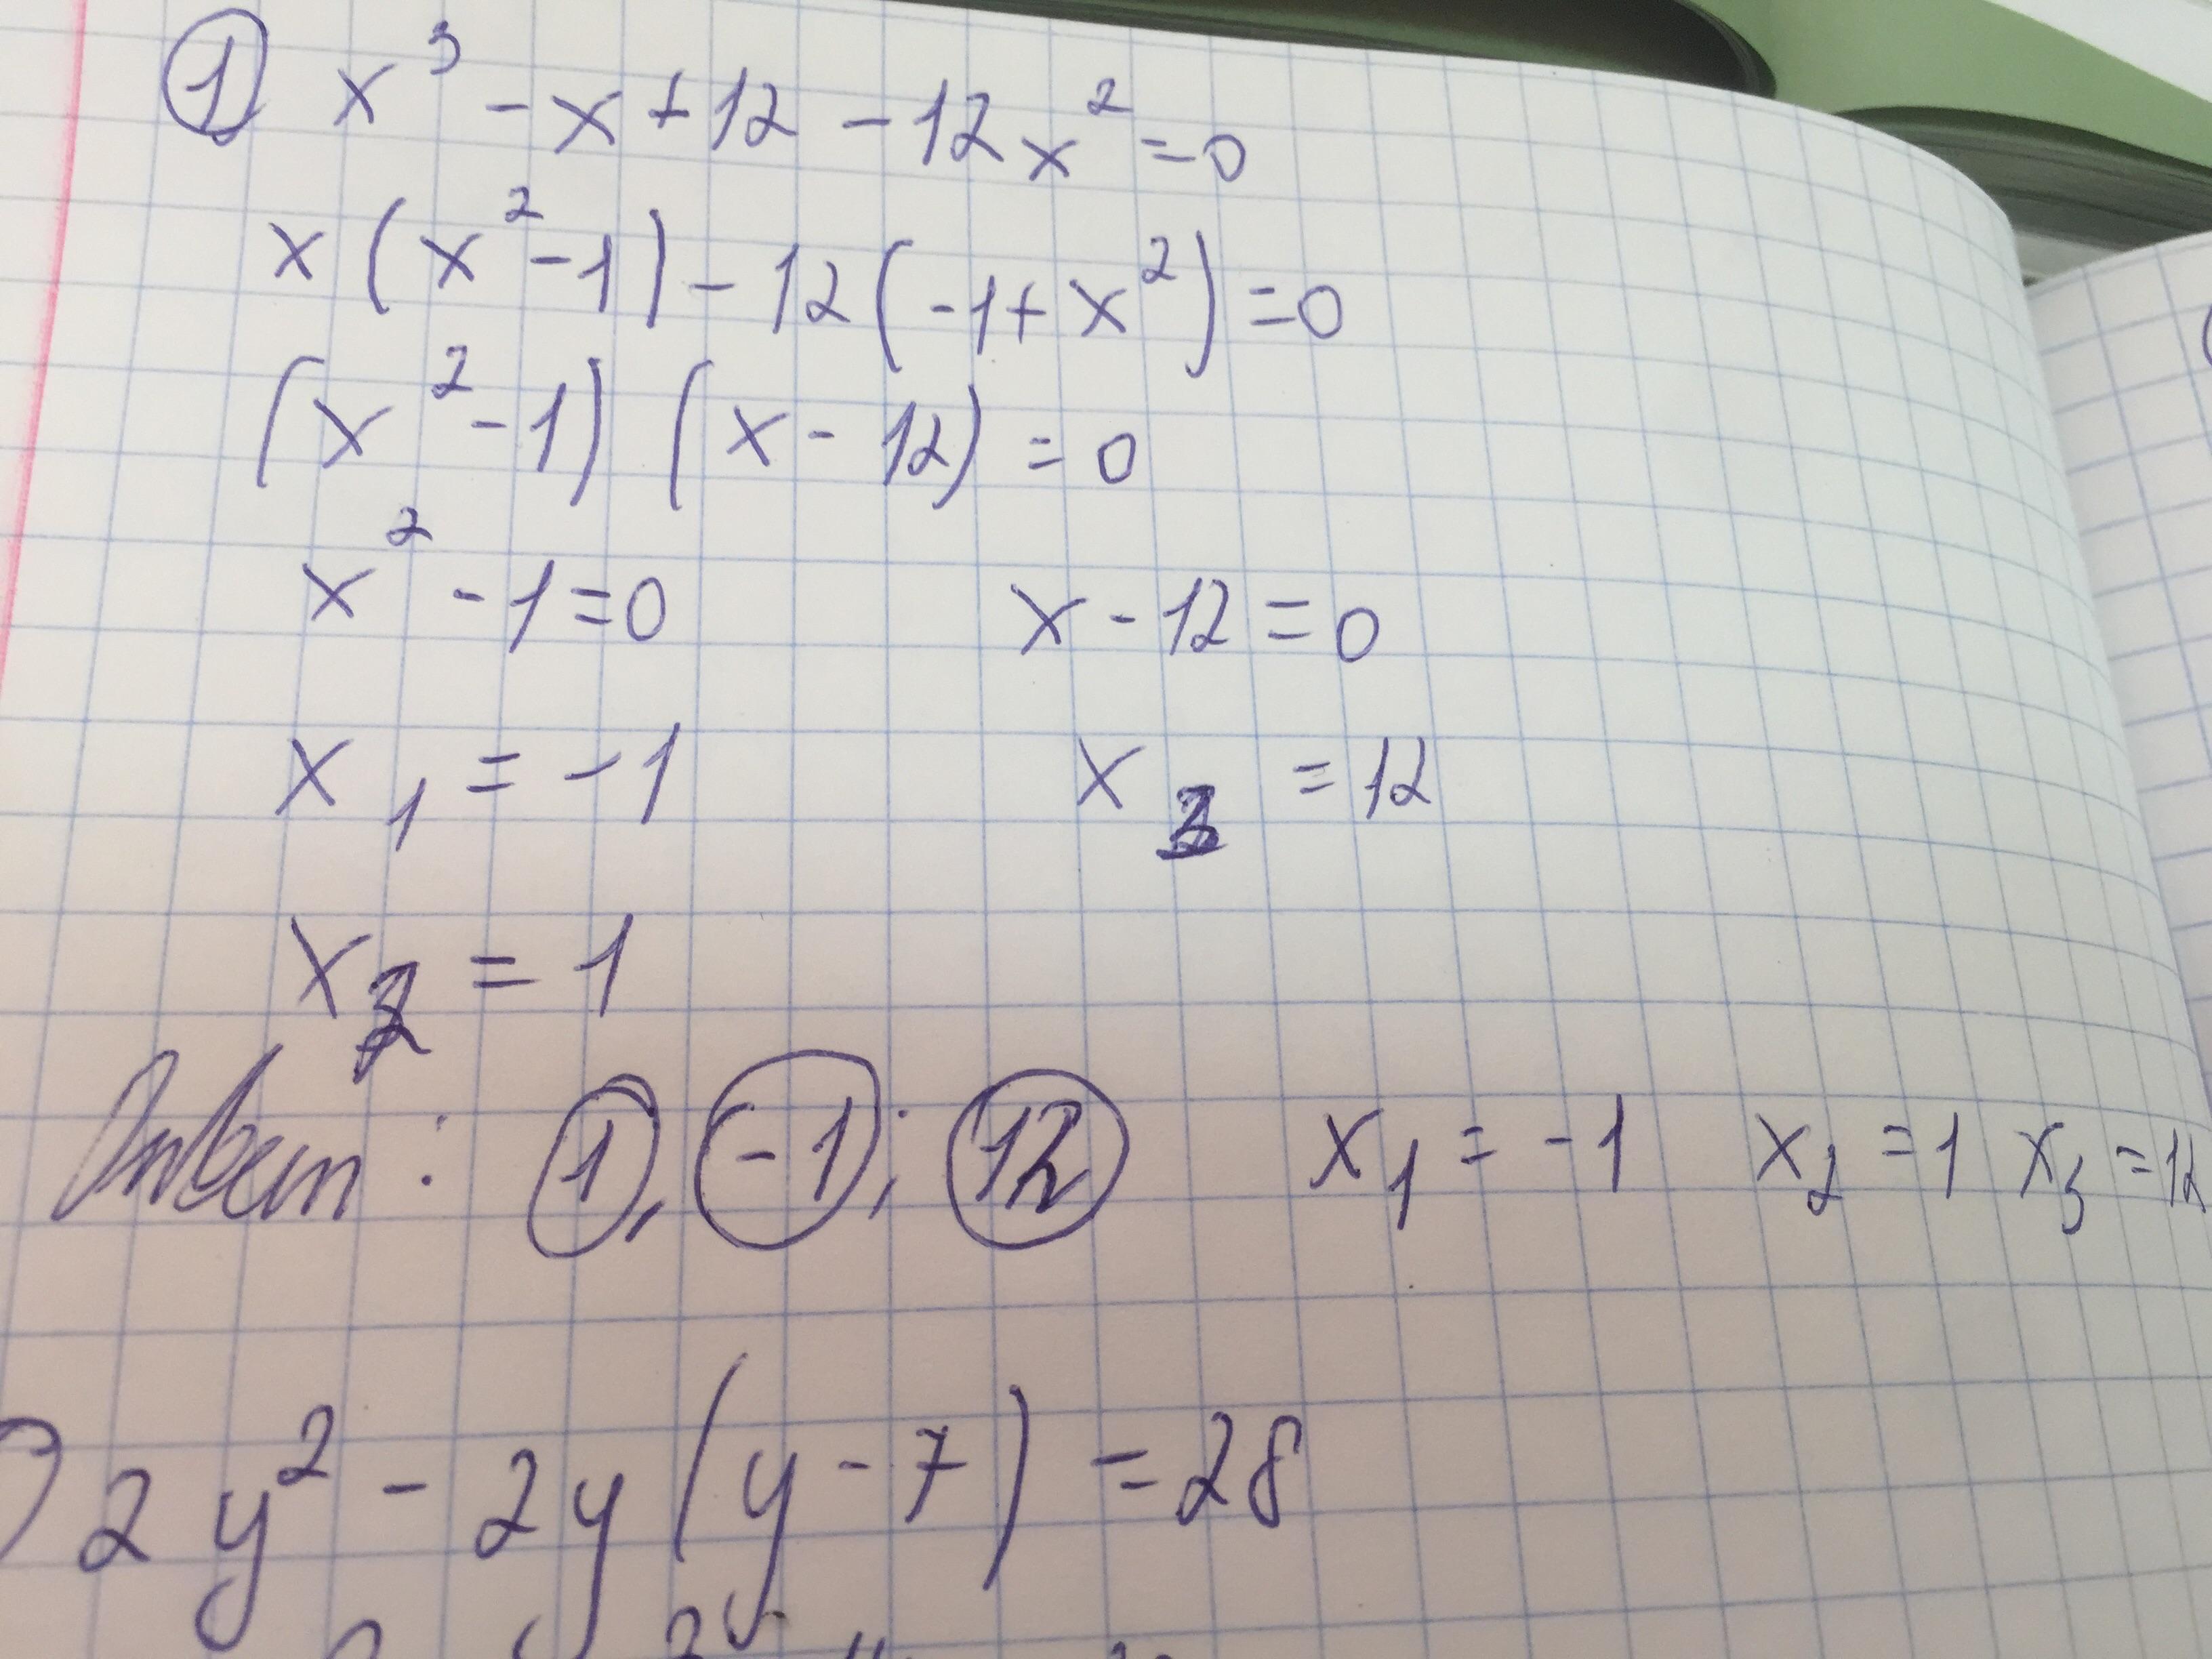 ① x³ - x + 12 - 12x² = 0
x(x² - 1) - 12(-1 + x²) = 0
(x² - 1)(x - 12) = 0
x² - 1 = 0 x - 12 = 0
x₁ = -1 x₃ = 12
x₂ = 1
Ответ: 1, -1; 12 x₁ = -1 x₂ = 1 x₃ = 12
2y² - 2y(y - 7) = 28